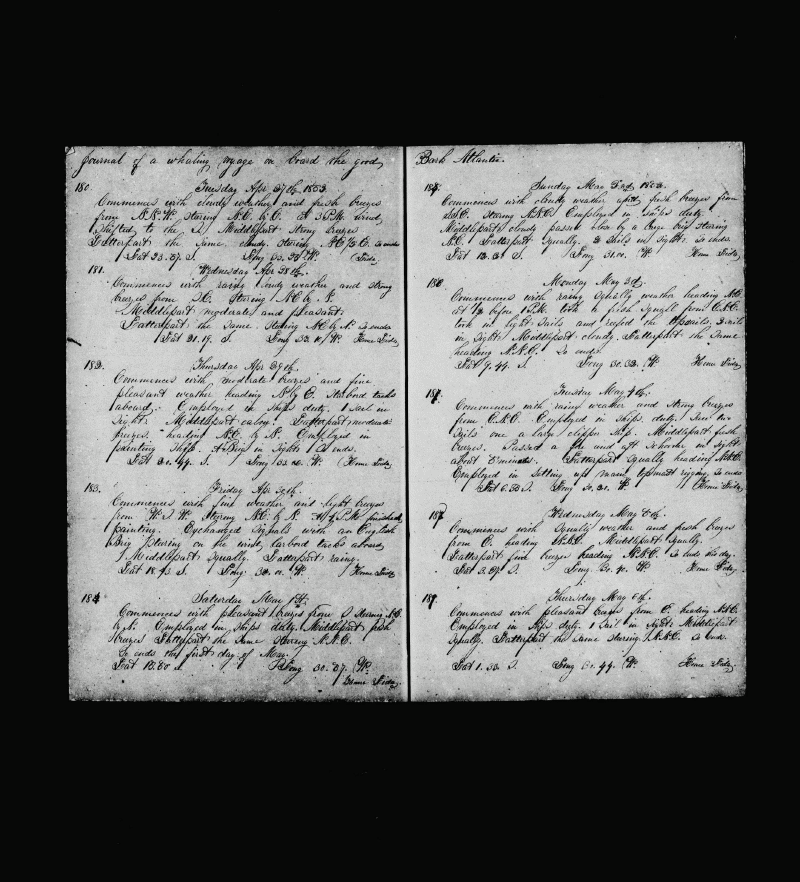 Journal of a whaling voyage on board the good
180. Tuesday Apr 27th, 1852
Commences with cloudy weather and fresh breezes
from N.N.W. Stering N.E. by E. at 3 P.M. wind
shifted to the S. Middlepart strong breezes
Latterpart the same cloudy stering N.E. by E. So ends
Latt 23.37 S. Long 35.28 W.
181. Wednesday Apr 28th,
Commences with rainy cloudy weather and strong
breezes from S.E. Stering N.E. by N.
Middlepart moderate and pleasant.
Latterpart the same. Stering N.E. by N. So ends
Latt 21.19. S. Long W. Home Side,
182. Thursday Apr 29th.
Commences with moderate breezes and fine
pleasant weather heading N. by E. Starbord tacks
aboard. Employed in Ships duty. 1 Sail in
Sight. Middlepart calm. Latterpart moderate
breezes. heading N.E. by N. Employed in
painting Ship. A Brig in sight So ends.
Latt S. Long W. Home Side,
183. Friday Apr 30th.
Commences with fine weather and light breezes
from W. Stering N.E. by N. At P.M. finished
painting. Exchanged Signals with an English
Brig stering on the wind, larbord tacks aboard,
Middlepart squally. Latterpart rainy.
Latt 18.43 S. Long W. Home Side
184 Saturday May 1st.
Commences with pleasant breezes from S Stering N.E.
by N. Employed in ships duty. Middlepart fresh
breezes Latterpart the same stering N.N.E.
So ends the first day of May.
Latt S Long 30.37. W.
Home Side,
Bark Atlantic.
Sunday May 2nd, 1852.
Commences with cloudy weather and fresh breezes from
stering N.N.E. Employed in ships duty.
Middlepart cloudy passed close by a large brig stering
N.E. Latterpart squally. 2 Sails in sight. So ends
Latt S. Long 31.00. W. Home Side,
Monday May 3d,
Commences with rainy squally weather heading N.E.
at ½ before 1 P.M. took a fresh squall from
took in light Sails and reefed the topsails. 2 sails
in sight. Middlepart cloudy. Latterpart the same
heading N.N.E. So ends.
Latt 9.44. S. Long 30.32. W. Home Side,
Tuesday May 4th,
Commences with rainy weather and strong breezes
from Employed in ships duty. Saw two
Sails one a large clipper Ship. Middlepart fresh
breezes. Passed a fore and aft Schooner in sight
about minutes. Latterpart squally heading N.N.E.
Employed in setting up main topmast rigging. So ends
Latt 6.30 S. Long 30.31. W. Home Side,
Wednesday May 5th,
Commences with squally weather and fresh breezes
from E. heading N.N.E. Middlepart squally.
Latterpart fine breezes heading N.N.E. So ends this day.
Latt 3.57 S. Long 30.40. W. Home Side,
Thursday May 6th,
Commences with pleasant breezes from E. heading N.N.E.
Employed in Ships duty. 1 Sail in sight. Middlepart
squally. Latterpart the same stering N.N.E. So ends.
Latt 1.33. S. Long 30.44. W. Home Side,